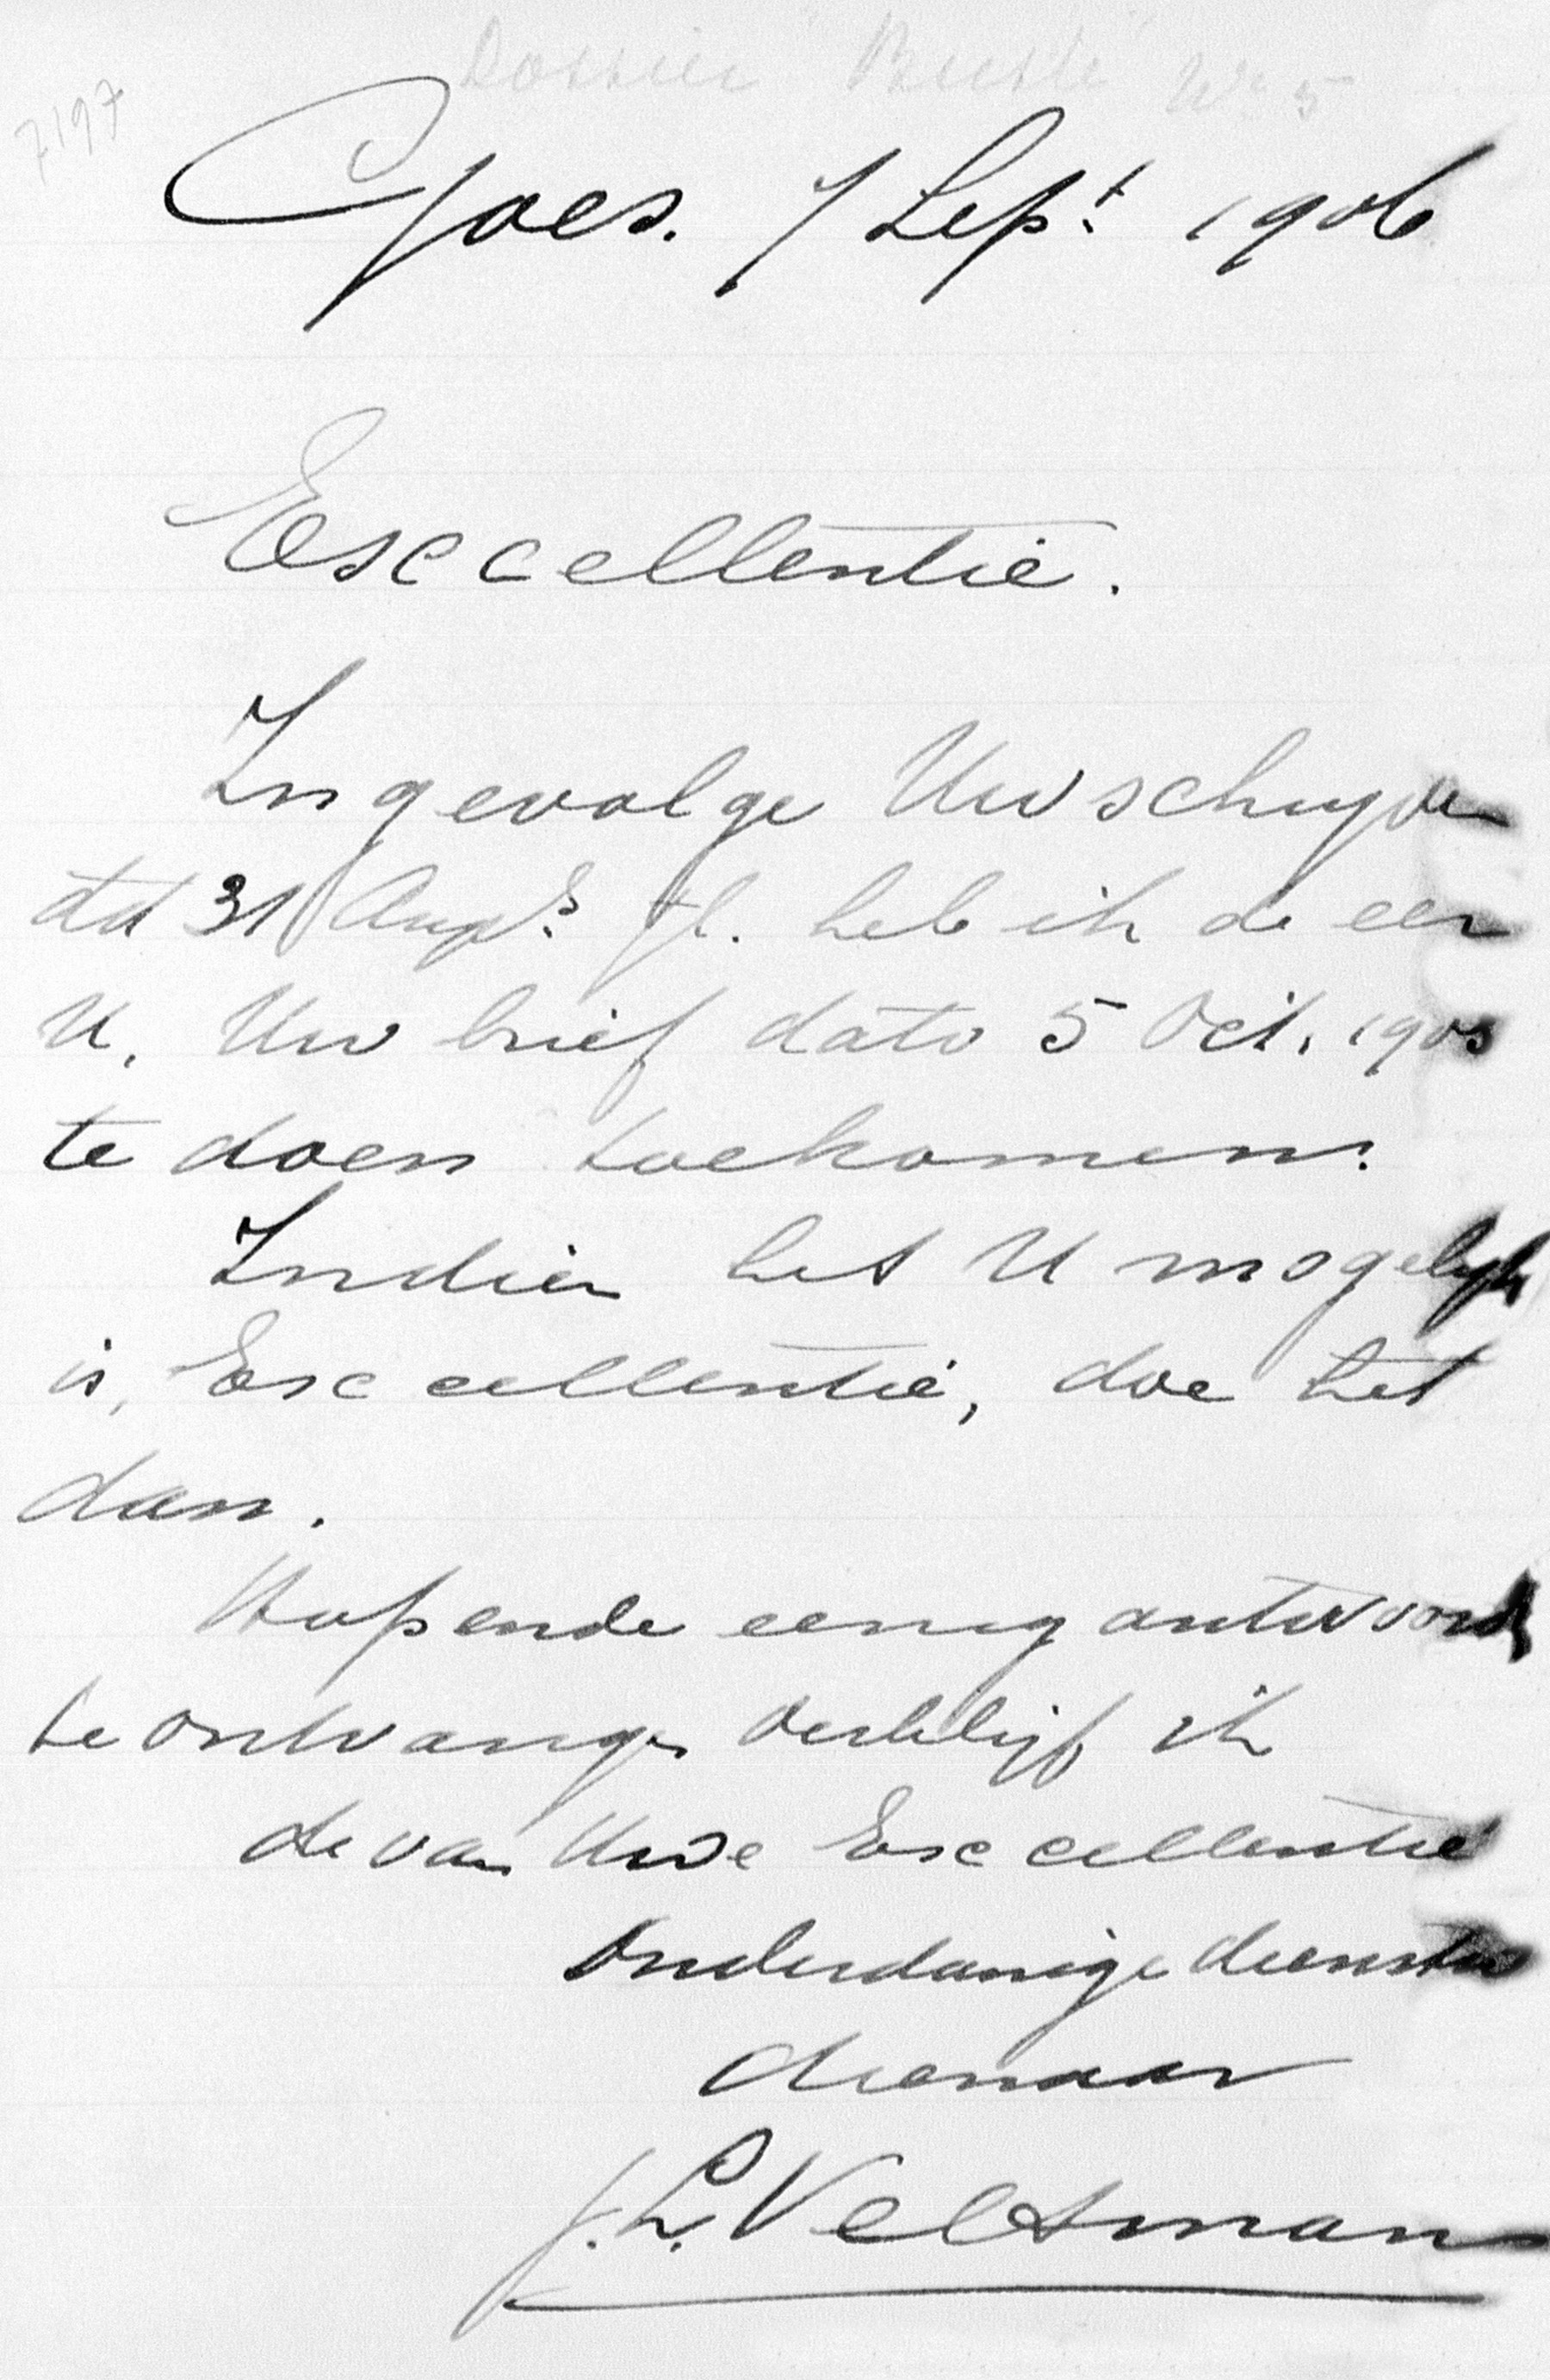 Dossier
7197
Goes. 7 Sept. 1906
Exccellentie.
Ingevolge Uw schryven
dd 31 Augs. jl. heb ik de eer
U, Uw brief dato 5 Oct. 1905
te doen toekomen.
Indien het U mogelyk
is, Exccellentie, doe het
dan.
Hopende eenig antwoord
te ontvangen verblijf ik
de van Uwe Exccellentie
onderdanige dienstw
dienaar
J. L. Veltman